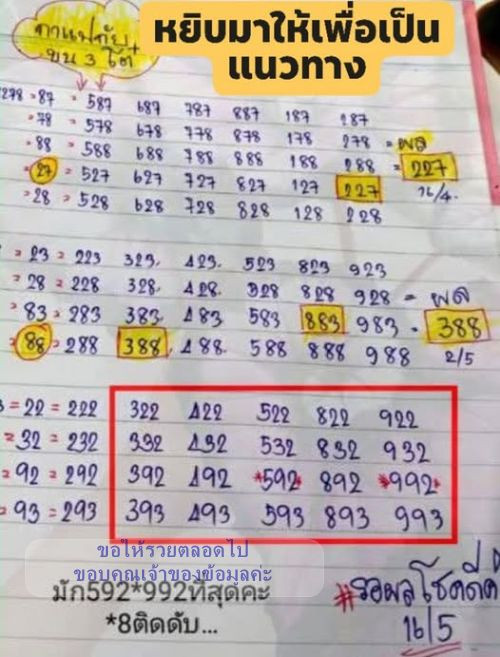 หยิบมาให้เพื่อเป็น
แนวทาง
บน 3 โต๊ด
278 = 87 = 587 687 787 887 187 287
= 78 = 578 678 778 878 178 278 = ผล
= 88 = 588 688 788 888 188 288 = 227
= 27 = 527 627 727 827 127 227 16/4.
= 28 = 528 628 728 828 128 228
= 23 = 223 323. 423. 523 823 923
= 28 = 228 328. 428. 528 828 928 = ผล
= 83 = 283 383. 483 583 883 983 = 388
= 88 = 288 388, 488. 588 888 988 2/5
= 22 = 222 322 422 522 822 922
= 32 = 232 332 432 532 832 932
= 92 = 292 392 492 *592* 892 *992*
= 93 = 293 393 493 593 893 993
ขอให้รวยตลอดไป
ขอบคุณเจ้าของข้อมูลค่ะ
มัก592*992ที่สุดคะ
*8ติดดับ...
#รอผลโชคดีค่
16/5